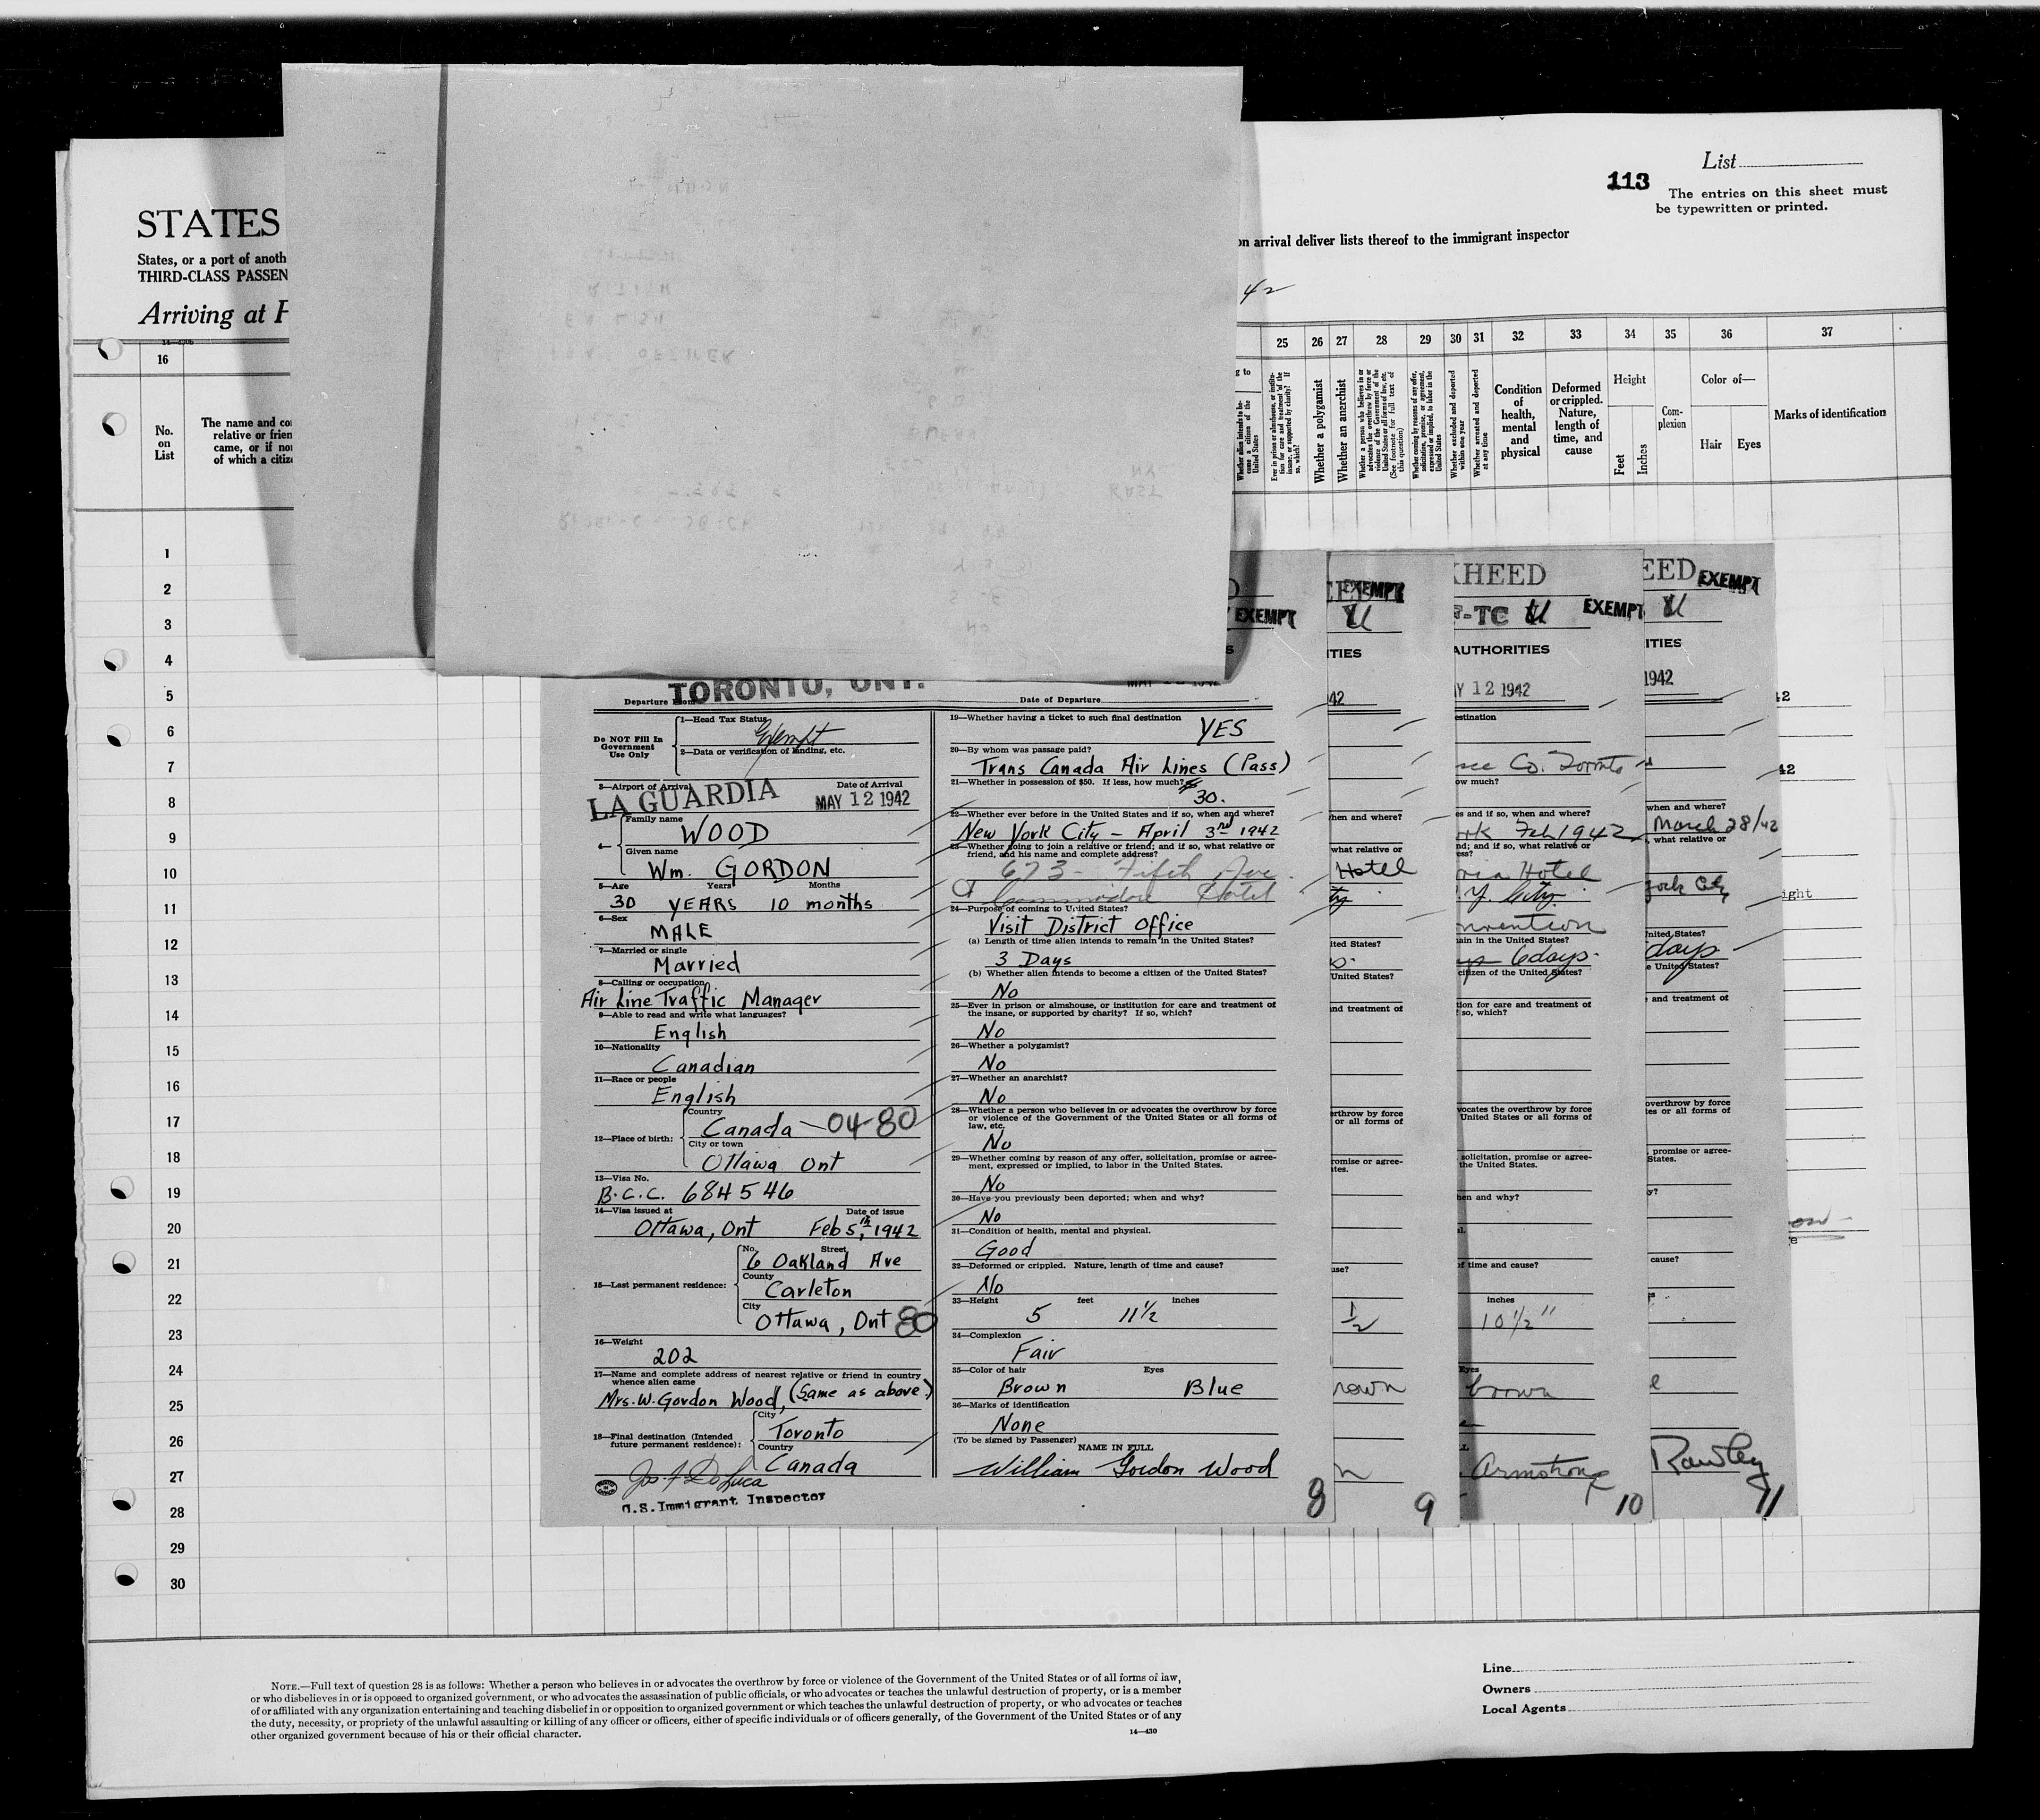 List
113
The entries on this sheet must
be typewritten or printed.
STATES
on arrival deliver lists thereof to the immigrant inspector
States, or a port of anoth
THIRD-CLASS PASSEN
Arriving at P
42
16
25 26 27 28 29 30 31 32 33 34 35 36 37
No.
on
List
The name and co
relative or frien
came, or if no
of which a citiz
Whether alien intends to be-
come a citizen of the
United States
Ever in prison or almshouse, or institu-
tion for care and treatment of the
insane, or supported by charity? If
so, which?
Whether a polygamist
Whether an anarchist
Whether a person who believes in or
advocates the overthrow by force or
violence of the Government of the
United States or all forms of law, etc.
(See footnote for full text of
this question)
Whether coming by reasons of any offer,
solicitation, promise, or agreement,
expressed or implied, to labor in the
United States
Whether excluded and deported
within one year
Whether arrested and deported
at any time
Condition
of
health,
mental
and
physical
Deformed
or crippled.
Nature,
length of
time, and
cause
Height
Feet
Inches
Com-
plexion
Color of—
Hair
Eyes
Marks of identification
1
2
3
4
5
6
7
8
9
10
11
12
13
14
15
16
17
18
19
20
21
22
23
24
25
26
27
28
29
30
TORONTO, ONT.
Departure from
Date of Departure
Do NOT Fill In
Government
Use Only
1—Head Tax Status
Exempt
2—Data or verification of landing, etc.
3—Airport of Arrival
Date of Arrival
LA GUARDIA
MAY 12 1942
4—
Family name
WOOD
Given name
Wm. GORDON
5—Age Years Months
30 YEARS 10 months
6—Sex
MALE
7—Married or single
Married
8—Calling or occupation
Air Line Traffic Manager
9—Able to read and write what languages?
English
10—Nationality
Canadian
11—Race or people
English
12—Place of birth:
Country
Canada — 04-80
City or town
Ottawa Ont
13—Visa No.
B.C.C. 684546
14—Visa issued at Date of issue
Ottawa, Ont Feb 5th, 1942
15—Last permanent residence:
No. Street
6 Oakland Ave
County
Carleton
City
Ottawa, Ont 80
16—Weight
202
17—Name and complete address of nearest relative or friend in country
whence alien came
Mrs. W. Gordon Wood, (Same as above)
18—Final destination (Intended
future permanent residence):
City
Toronto
Country
Canada
Jos. F. DeLuca
U.S. Immigrant Inspector
19—Whether having a ticket to such final destination
YES
20—By whom was passage paid?
Trans Canada Air Lines (Pass)
21—Whether in possession of $50. If less, how much?
30.
22—Whether ever before in the United States and if so, when and where?
New York City — April 3rd 1942
23—Whether going to join a relative or friend; and if so, what relative or
friend, and his name and complete address?
673 - Fifth Ave.
Commodore Hotel
24—Purpose of coming to United States?
Visit District Office
(a) Length of time alien intends to remain in the United States?
3 Days
(b) Whether alien intends to become a citizen of the United States?
No
25—Ever in prison or almshouse, or institution for care and treatment of
the insane, or supported by charity? If so, which?
No
26—Whether a polygamist?
No
27—Whether an anarchist?
No
28—Whether a person who believes in or advocates the overthrow by force
or violence of the Government of the United States or all forms of
law, etc.
No
29—Whether coming by reason of any offer, solicitation, promise or agree-
ment, expressed or implied, to labor in the United States.
No
30—Have you previously been deported; when and why?
No
31—Condition of health, mental and physical.
Good
32—Deformed or crippled. Nature, length of time and cause?
No
33—Height feet inches
5 11½
34—Complexion
Fair
35—Color of hair Eyes
Brown Blue
36—Marks of identification
None
(To be signed by Passenger)
NAME IN FULL
William Gordon Wood
8
EXEMPT
EXEMPT
TIES
42
hen and where?
what relative or
Hotel
ited States?
United States?
nd treatment of
erthrow by force
or all forms of
romise or agree-
tes.
use?
½
rown
9
KHEED
F-TC
EXEMPT
AUTHORITIES
Y 12 1942
estination
Co. Toronto
ow much?
es and if so, when and where?
rk Feb 1942
nd; and if so, what relative or
ess?
ria Hotel
Y. City.
nvention
ain in the United States?
6 days.
citizen of the United States?
tion for care and treatment of
so, which?
vocates the overthrow by force
United States or all forms of
solicitation, promise or agree-
the United States.
hen and why?
al.
of time and cause?
inches
10½"
Eyes
brown
Armstrong
10
EED
EXEMPT
ITIES
1942
when and where?
March 28/42
, what relative or
York City
nited States?
days
e United States?
and treatment of
overthrow by force
tes or all forms of
, promise or agree-
States.
y?
cause?
Rawley
11
42
42
ight
NOTE.—Full text of question 28 is as follows: Whether a person who believes in or advocates the overthrow by force or violence of the Government of the United States or of all forms of law,
or who disbelieves in or is opposed to organized government, or who advocates the assassination of public officials, or who advocates or teaches the unlawful destruction of property, or is a member
of or affiliated with any organization entertaining and teaching disbelief in or opposition to organized government or which teaches the unlawful destruction of property, or who advocates or teaches
the duty, necessity, or propriety of the unlawful assaulting or killing of any officer or officers, either of specific individuals or of officers generally, of the Government of the United States or of any
other organized government because of his or their official character.
14—430
Line
Owners
Local Agents